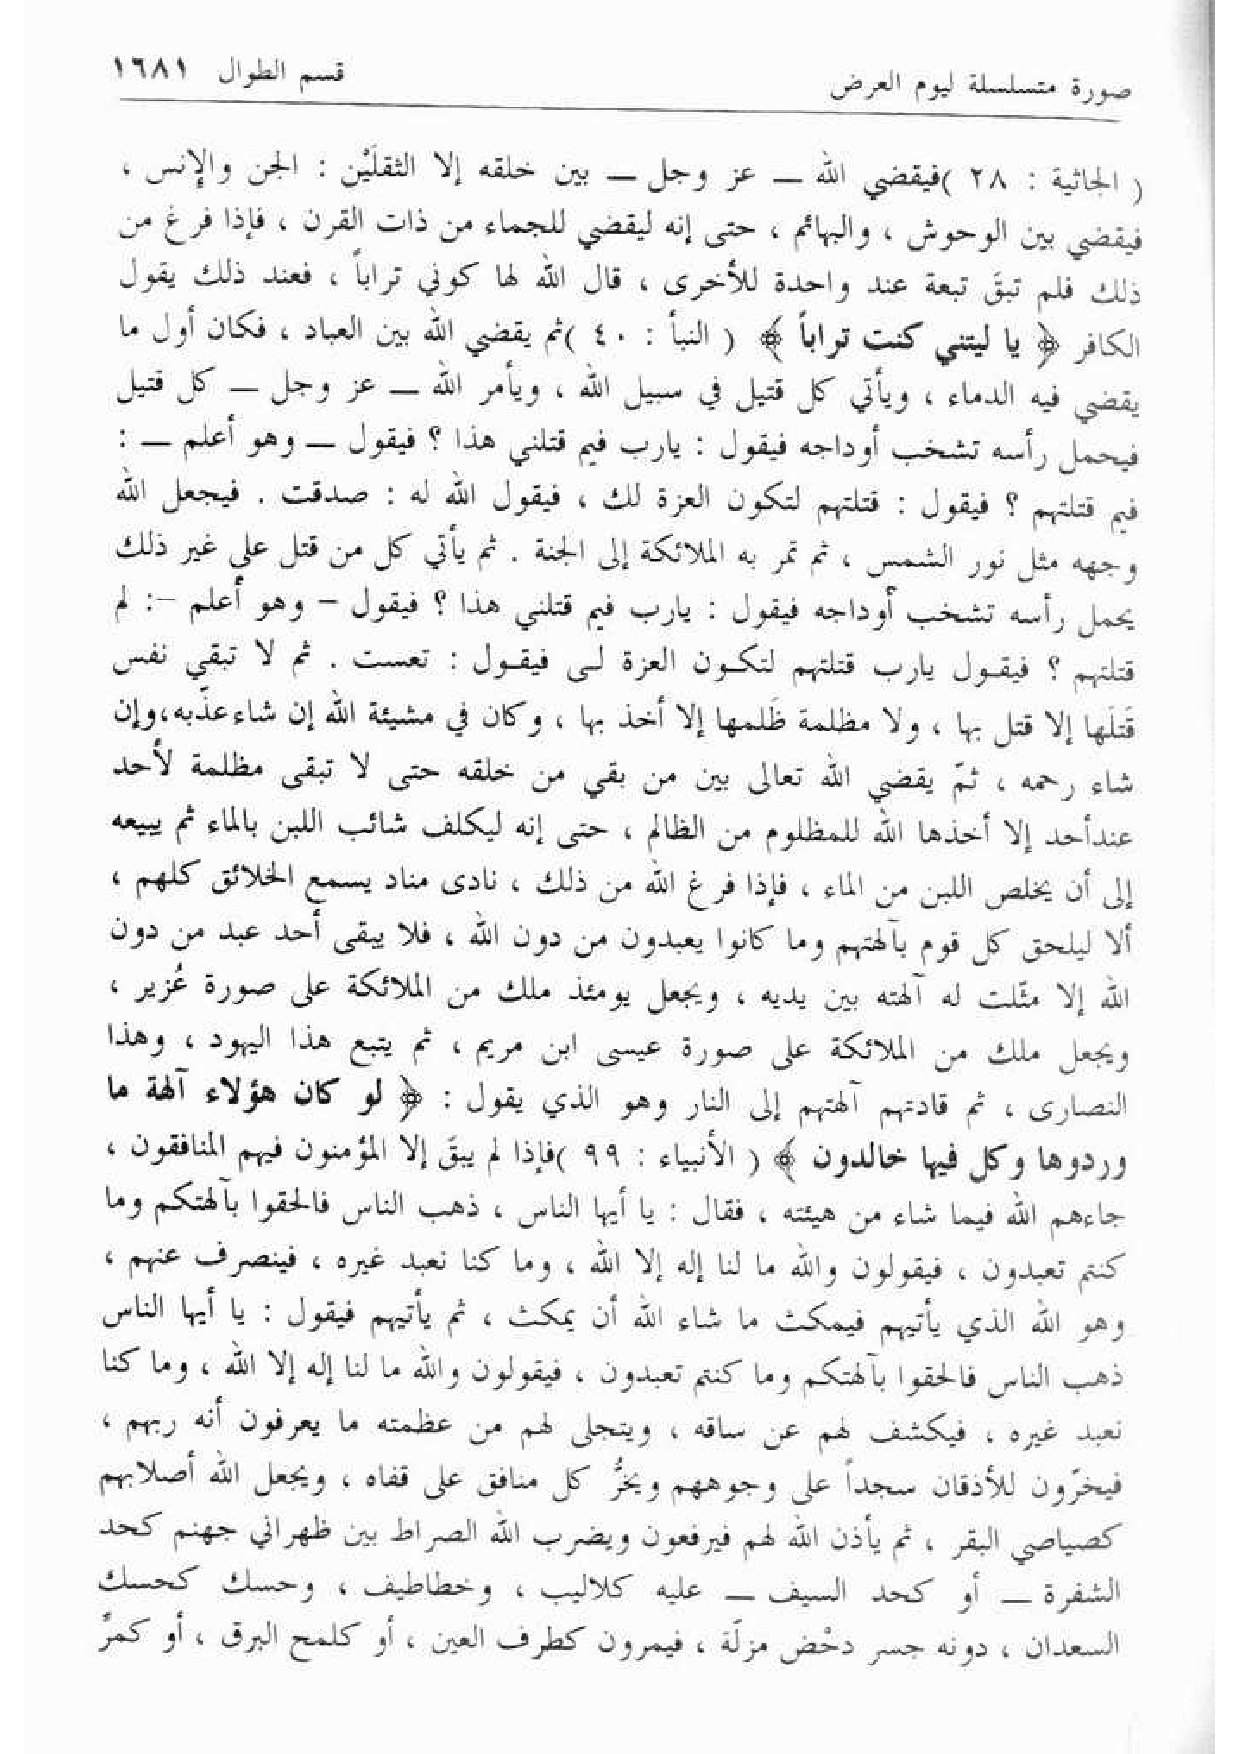 صورة متسلسلة ليوم العرض قسم الطوال ١٦٨١
( الجاثية : ٢٨ )فيقضي الله ــ عز وجل ــ بين خلقه إلا الثقلَيْن : الجن والإنس ،
فيقضي بين الوحوش ، والبهائم ، حتى إنه ليقضي للجماء من ذات القرن ، فإذا فرغ من
ذلك فلم تبقَ تبعة عند واحدة للأخرى ، قال الله لها كوني تراباً ، فعند ذلك يقول
الكافر ﴿ يا ليتني كنت تراباً ﴾ ( النبأ : ٤٠ )ثم يقضي الله بين العباد ، فكان أول ما
يقضي فيه الدماء ، ويأتي كل قتيل في سبيل الله ، ويأمر الله ــ عز وجل ــ كل قتيل
فيحمل رأسه تشخب أوداجه فيقول : يارب فيم قتلني هذا ؟ فيقول ــ وهو أعلم ــ :
فيم قتلتهم ؟ فيقول : قتلتهم لتكون العزة لك ، فيقول الله له : صدقت . فيجعل الله
وجهه مثل نور الشمس ، ثم تمر به الملائكة إلى الجنة . ثم يأتي كل من قتل على غير ذلك
يحمل رأسه تشخب أوداجه فيقول : يارب فيم قتلني هذا ؟ فيقول – وهو أعلم –: لم
قتلتهم ؟ فيقول يارب قتلتهم لتكون العزة لى فيقول : تعست . ثم لا تبقي نفس
قَتلَها إلا قتل بها ، ولا مظلمة ظَلمها إلا أخذ بها ، وكان في مشيئة الله إن شاءعذّبه،وإن
شاء رحمه ، ثمّ يقضي الله تعالى بين من بقي من خلقه حتى لا تبقى مظلمة لأحد
عندأحد إلا أخذها الله للمظلوم من الظالم ، حتى إنه ليكلف شائب اللبن بالماء ثم يبيعه
إلى أن يخلص اللبن من الماء ، فإذا فرغ الله من ذلك ، نادى مناد يسمع الخلائق كلهم ،
ألا ليلحق كل قوم بآلهتهم وما كانوا يعبدون من دون الله ، فلا يبقى أحد عبد من دون
الله إلا مثّلت له آلهته بين يديه ، ويجعل يومئذ ملك من الملائكة على صورة عُزير ،
ويجعل ملك من الملائكة على صورة عيسى ابن مريم ، ثم يتبع هذا اليهود ، وهذا
النصارى ، ثم قادتهم آلهتهم إلى النار وهو الذي يقول : ﴿ لو كان هؤلاء آلهة ما
وردوها وكل فيها خالدون ﴾ ( الأنبياء : ٩٩ )فإذا لم يبقَ إلا المؤمنون فيهم المنافقون ،
جاءهم الله فيما شاء من هيئته ، فقال : يا أيها الناس ، ذهب الناس فالحقوا بآلهتكم وما
كنتم تعبدون ، فيقولون والله ما لنا إله إلا الله ، وما كنا نعبد غيره ، فينصرف عنهم ،
وهو الله الذي يأتيهم فيمكث ما شاء الله أن يمكث ، ثم يأتيهم فيقول : يا أيها الناس
ذهب الناس فالحقوا بآلهتكم وما كنتم تعبدون ، فيقولون والله ما لنا إله إلا الله ، وما كنا
نعبد غيره ، فيكشف لهم عن ساقه ، ويتجلى لهم من عظمته ما يعرفون أنه ربهم ،
فيخرّون للأذقان سجداً على وجوههم ويخرُّ كل منافق على قفاه ، ويجعل الله أصلابهم
كصياصي البقر ، ثم يأذن الله لهم فيرفعون ويضرب الله الصراط بين ظهراني جهنم كحد
الشفرة ــ أو كحد السيف ــ عليه كلاليب ، وخطاطيف ، وحسك كحسك
السعدان ، دونه جسر دحْض مزلَة ، فيمرون كطرف العين ، أو كلمح البرق ، أو كمرِّ